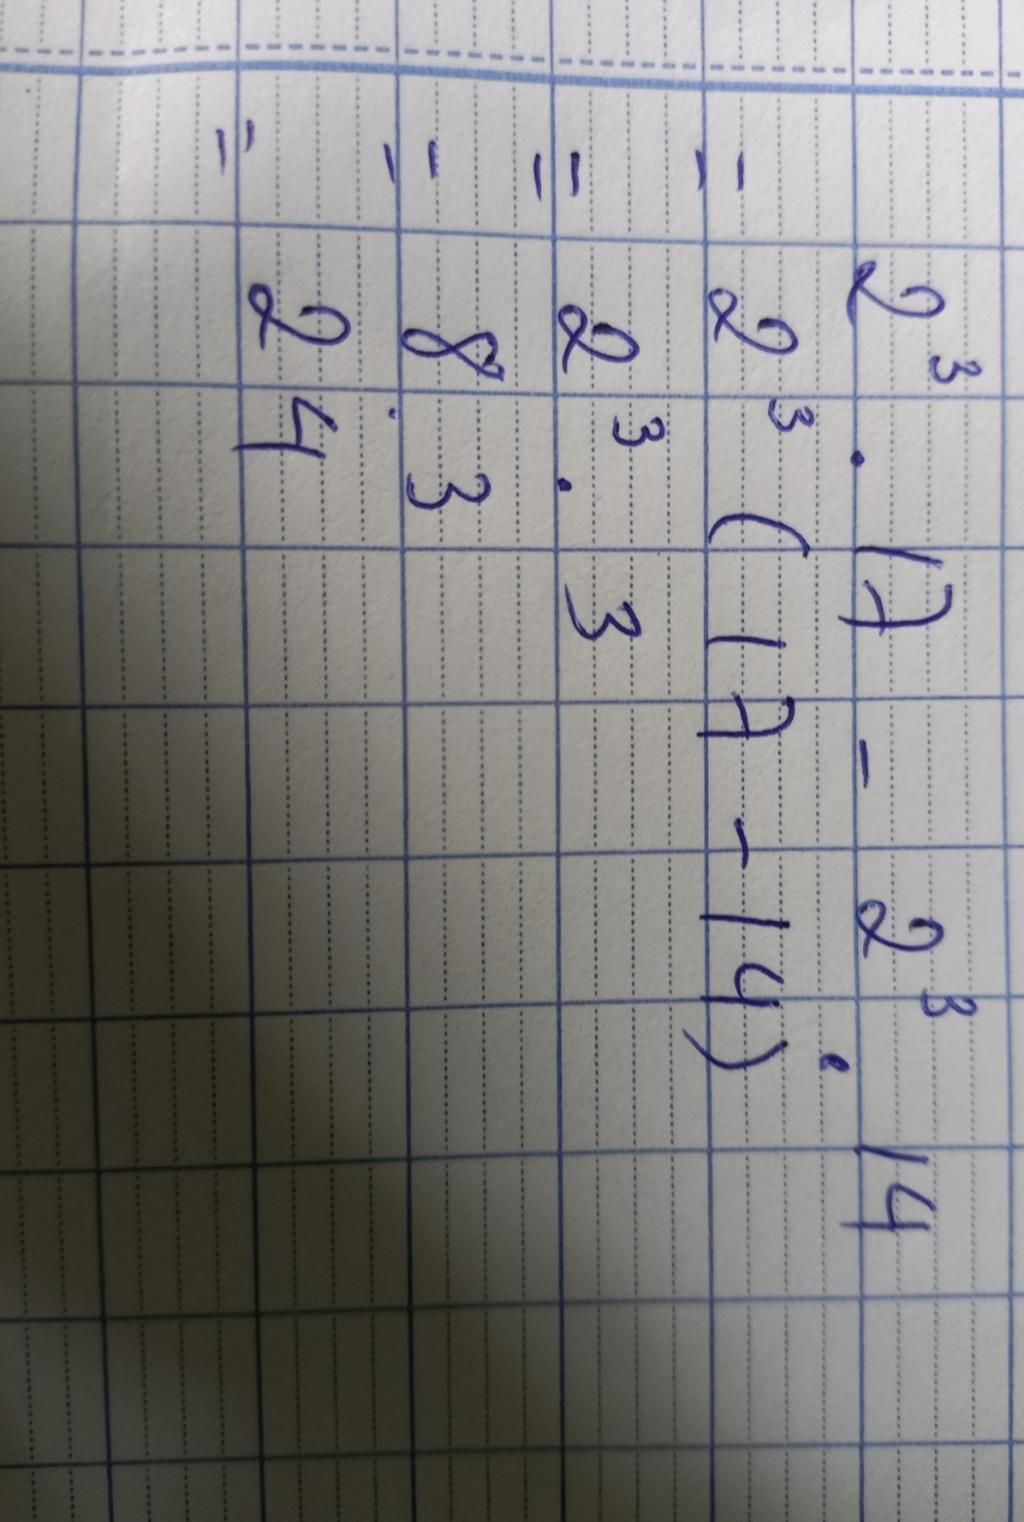 2³ . 17 - 2³ . 14
= 2³ (17 - 14)
= 2³ . 3
= 8 . 3
= 24